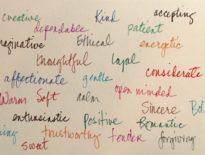 creative Kind accepting
dependable patient
imaginative Ethical energetic
thoughtful Loyal
affectionate gentle considerate
Warm Soft calm open minded
Sincere
enthusiastic Positive Romantic
trustworthy Tender forgiving
sweet